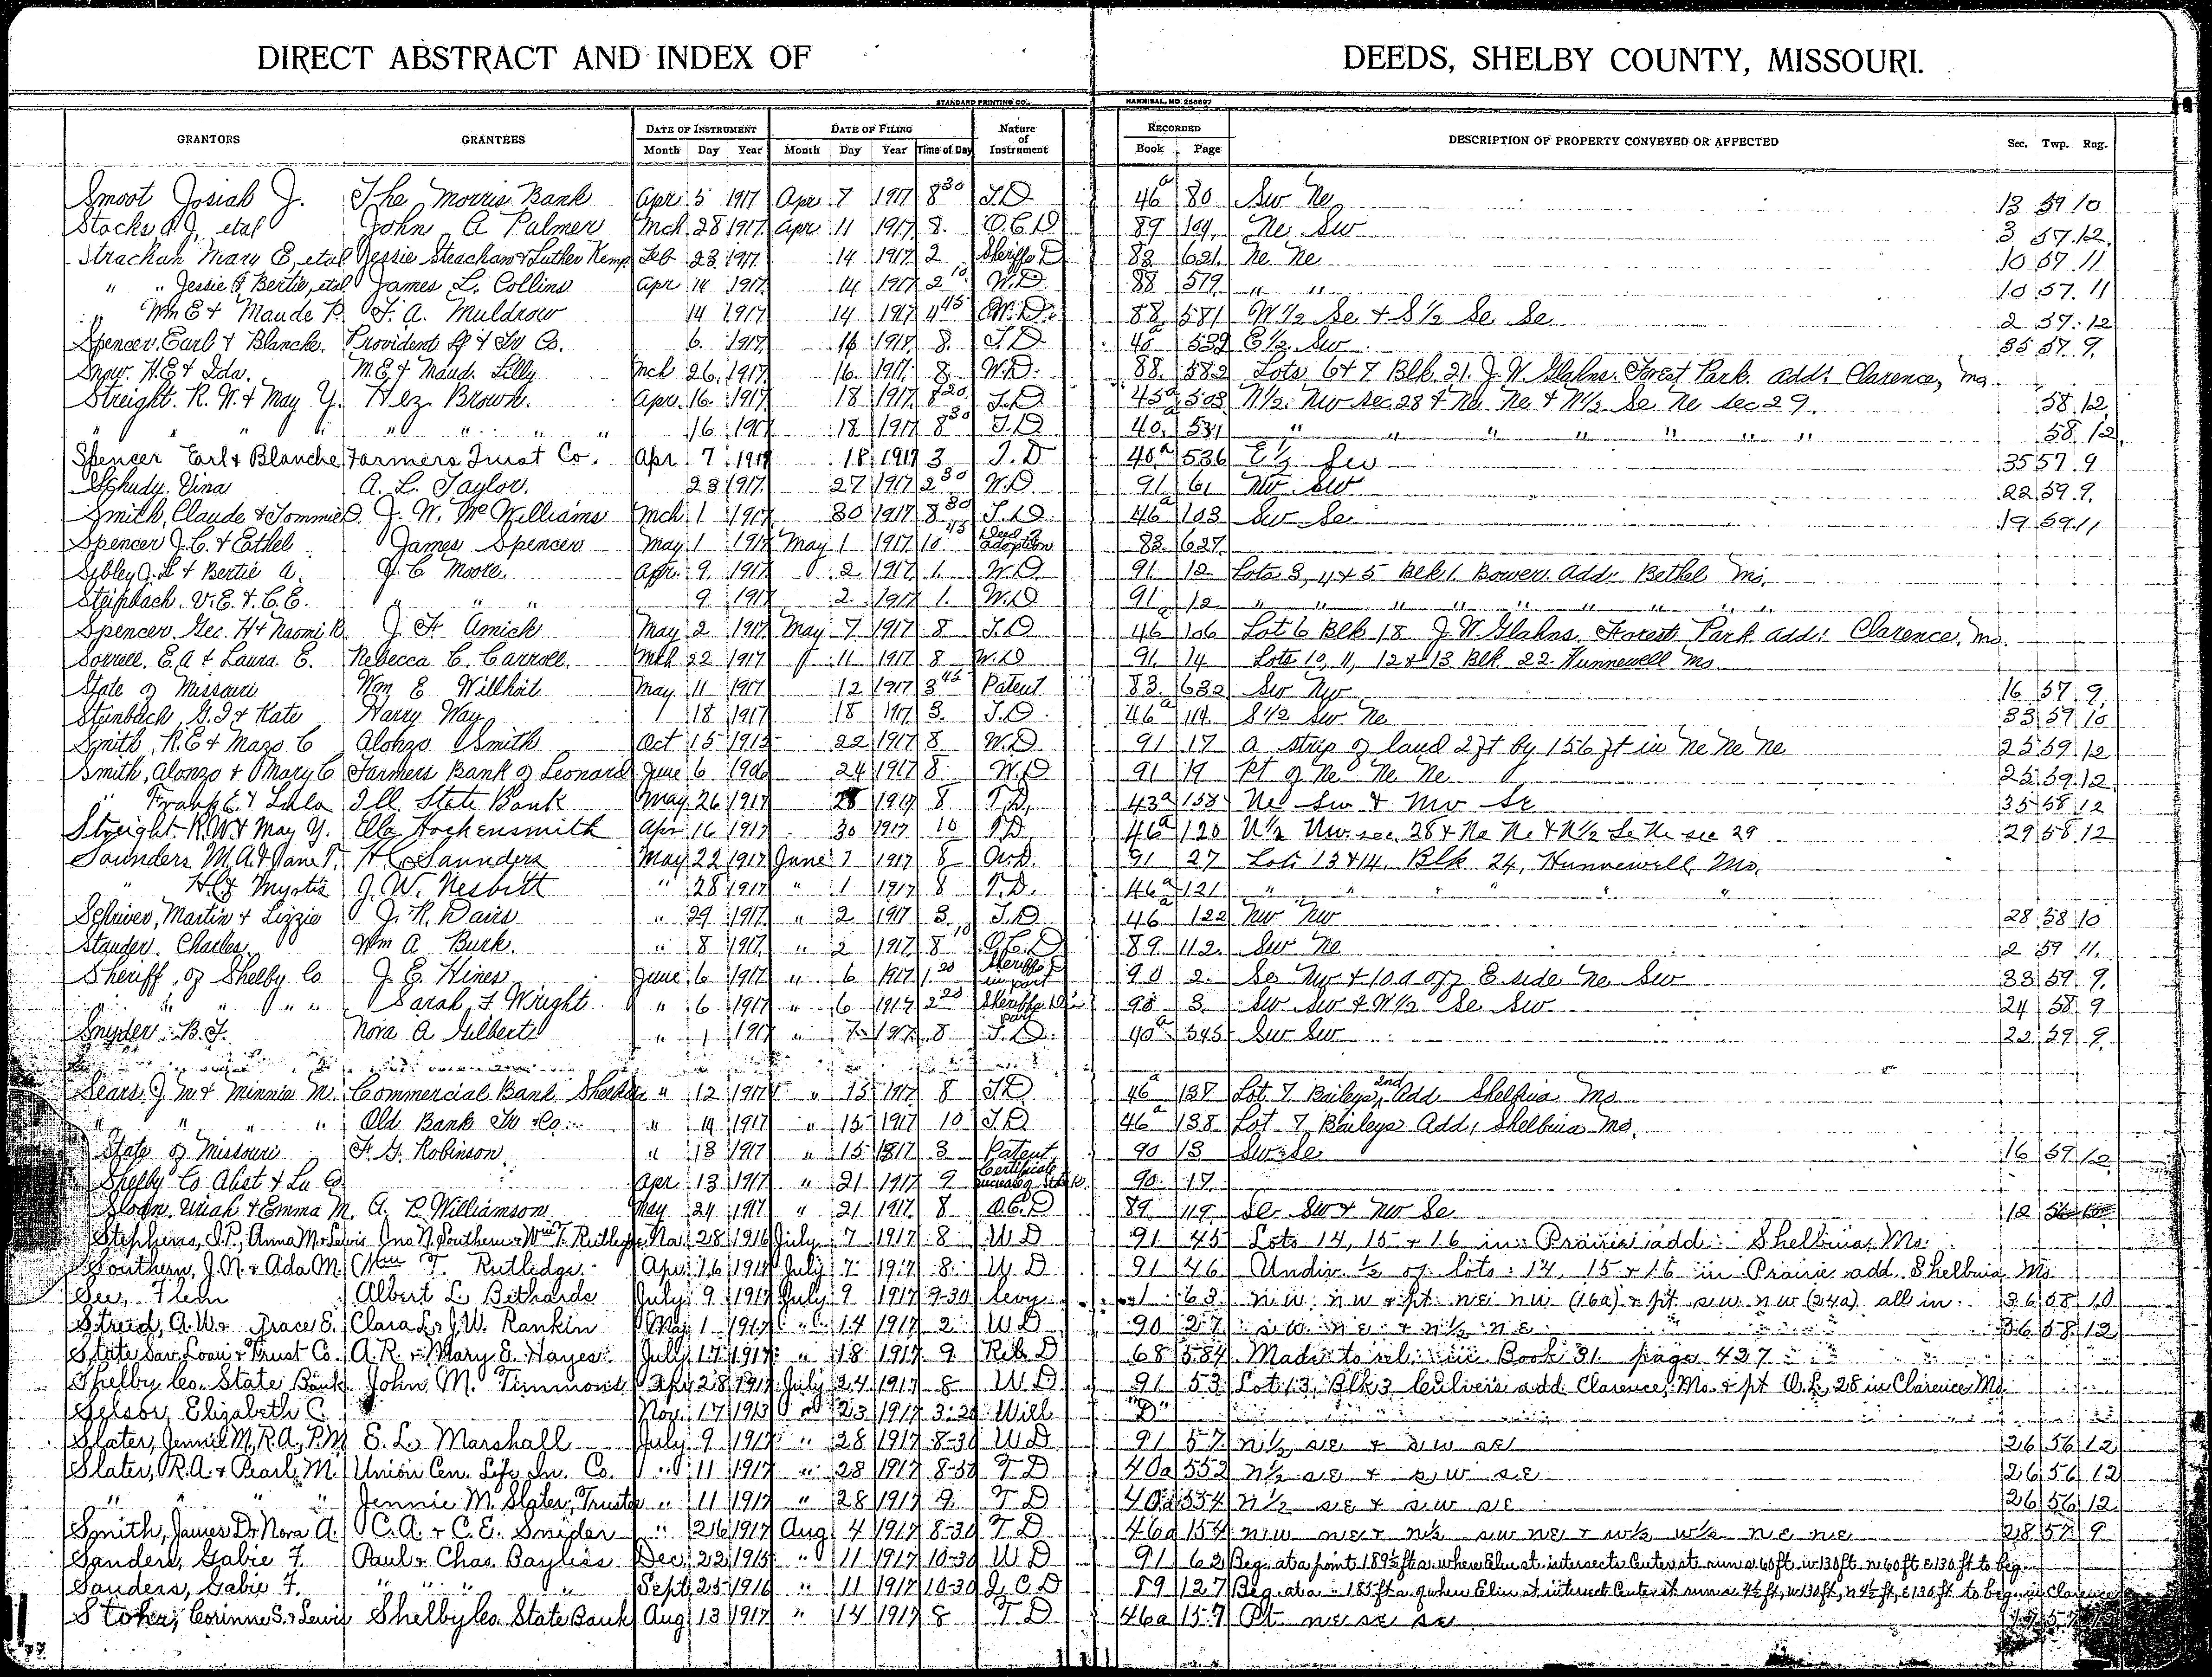 DIRECT ABSTRACT AND INDEX OF DEEDS, SHELBY COUNTY, MISSOURI.
STANDARD PRINTING CO., HANNIBAL, MO
GRANTORS GRANTEES DATE OF INSTRUMENT DATE OF FILING Nature of Instrument RECORDED DESCRIPTION OF PROPERTY CONVEYED OR AFFECTED Sec. Twp. Rng.
Month Day Year Month Day Year Time of Day Book Page
Smoot Josiah J. The Morris Bank Apr 5 1917 Apr 7 1917 8 30 T.D 46a 80 Sw Ne 13 59 10
Stocks etal John A Palmer Mch 28 1917 Apr 11 1917 8. Q.C.D 89 109 Ne Sw 3 57 12
Strachan Mary E, etal Jessie Strachan & Luther Kemp Feb 23 1917 14 1917 2 Sheriffs D 83 621 Ne Ne 10 57 11
" " Jessie & Bertie, etal James L. Collins Apr 14 1917 14 1917 2 10 W.D. 88 579 " " 10 57 11
" Wm E & Maude P. F. A. Muldrow 14 1917 14 1917 4 45 W.D. 88 581 W 1/2 Se & S 1/2 Se Se 2 57 12
Spencer Earl & Blanch. Provident & Tr Co. 6 1917 16 1917 8 T.D 40a 532 E 1/2 Sw 35 57 9
Snow H.E & Ida. M.E & Maud Lilly Mch 26 1917 16 1917 8 W.D. 88 582 Lots 6 & 7 Blk 21 J. W. Glahns Forest Park add: Clarence, Mo.
Streight R. W. & May Y. Hez Brown Apr 16 1917 18 1917 8 20 T.D 45a 503 N 1/2 Nw Sec 28 & Ne Ne & N 1/2 Se Ne Sec 29 58 12
" " " " " " 16 1917 18 1917 8 30 T.D 40a 531 " " " " " " " 58 12
Spencer Earl & Blanche Farmers Trust Co. Apr 7 1917 18 1917 3 T.D 40a 536 E 1/2 Sw 35 57 9
Schudy Vina A. L. Taylor 23 1917 27 1917 2 30 W.D 91 61 Nw Sw 22 59 9
Smith, Claude & Tommie D. J. W. McWilliams Mch 1 1917 30 1917 8 30 T.D. 46a 103 Sw Se 19 59 11
Spencer J. C. & Ethel James Spencer May 1 1917 May 1 1917 10 45 Deed adoption 83 627
Sibley J. L & Bertie A. J. C Moore Apr 9 1917 2 1917 1. W.D. 91 12 Lots 3, 4 & 5 Blk 1 Bower add: Bethel Mo.
Steinbach V. E. & C. E. " " " 9 1917 2 1917 1. W.D 91 12 " " " " " " " " "
Spencer Geo. H & Naomi R. J. H Amick May 2 1917 May 7 1917 8 T.D 46a 106 Lot 6 Blk 18 J. W. Glahns Forest Park add: Clarence, Mo.
Sorrell E. A & Laura E. Rebecca C. Carroll Mch 22 1917 11 1917 8 W.D 91 14 Lots 10, 11, 12 & 13 Blk 22 Hunnewell Mo
State of Missouri Wm E Willhoit May 11 1917 12 1917 3 45 Patent 83 632 Sw Nw 16 57 9
Steinbach G. I & Kate Harry Way 18 1917 18 1917 3 T.D. 46a 114 S 1/2 Sw Ne 33 59 10
Smith, R. E & Mazo C Alonzo Smith Oct 15 1915 22 1917 8 W.D 91 17 a strip of land 27ft by 156 ft in Ne Ne Ne 25 59 12
Smith, Alonzo & Mary C Farmers Bank of Leonard June 6 1906 24 1917 8 W.D 91 19 pt of Ne Ne Ne 25 59 12
" Frank E. & Lula Ill State Bank May 26 1917 28 1917 8 T.D. 43a 158 Ne Sw & Nw Se 35 58 12
Streight R. W & May Y. Ella Hockensmith Apr 16 1917 30 1917 10 T.D. 46a 120 N 1/2 Nw sec. 28 & Ne Ne & N 1/2 Se Ne sec 29 29 58 12
Saunders M. A. & Jane T. H. C. Saunders May 22 1917 June 1 1917 8 W.D. 91 27 Lots 13 & 14, Blk 24, Hunnewell, Mo.
" Myrtis J. W. Nesbitt " 28 1917 " 1 1917 8 T.D. 46a 121 " " " " " "
Schriver, Martin & Lizzie J. R. Davis " 29 1917 " 2 1917 3 T.D 46a 122 Nw Nw 28 58 10
Stauder Charles Wm A Burk. " 8 1917 " 2 1917 8 10 Q.C.D 89 112 Sw Ne 2 59 11
Sheriff of Shelby Co J. E. Hines June 6 1917 " 6 1917 1 20 Sheriffs D in part 90 2 Se Nw & 10 a off E side Ne Sw 33 59 9
" " " " Sarah F Wright " 6 1917 " 6 1917 2 20 Sheriffs D in part 90 3 Sw Sw & W 1/2 Se Sw 24 58 9
Snyder B. F. Nora A Gilbert " 1 1917 " 7 1917 8 T.D. 40a 545 Sw Sw 22 59 9
Sears J M & Minnie M. Commercial Bank " 12 1917 " 15 1917 8 T.D 46a 137 Lot 7 Baileys 2nd Add Shelbina Mo
" " " " Old Bank Tr Co. " 14 1917 " 15 1917 10 T.D 46a 138 Lot 7 Baileys Add, Shelbina Mo.
State of Missouri F. G. Robinson " 13 1917 " 15 1917 3 Patent 90 13 Sw Se 16 59 12
Shelby Co Abst & Co. Apr 13 1917 " 21 1917 9 Certificate increase of Stock 90 17
Sloan Uriah & Emma M. A. P. Williamson May 24 1917 " 21 1917 8 Q.C.D 89 119 Se Sw & Nw Se 12
Stephens, J.P., Anna M & Lewis Jno N. Southern & Wm T. Rutledge 28 1916 July 7 1917 8 W D 91 45 Lots 14, 15 & 16 in Prairie add: Shelbina, Mo.
Southern, J. N. & Ada M. Wm T. Rutledge Apr 16 1917 July 7 1917 8 W. D 91 46 Undiv. 1/2 of lots 14, 15 & 16 in Prairie add. Shelbina Mo
See, Flem Albert L. Bethards July 9 1917 July 9 1917 9-30 Levy 1 63 nw nw & pt ne nw (16a) & pt sw nw (24a) all in 36 58 10
Streid, A. W. & Grace E. Clara L. & J. W. Rankin May 1 1917 " 14 1917 2 WD 90 27 sw ne & n 1/2 ne 36 58 12
State Sav. Loan & Trust Co. A. R. & Mary E. Hayes July 17 1917 " 18 1917 9 Rel. D 68 584 Made to rel. in Book 31 page 427
Shelby Co. State Bank John M. Timmons Apr 28 1917 July 24 1917 8 WD 91 53 Lot 13, Blk 3 Culvers add Clarence, Mo. & pt O. L. 28 in Clarence Mo
Selsor Elizabeth C. Nov. 17 1913 " 23 1917 3:20 Will "D"
Slater, Jennie M, R. A., P. M E. L. Marshall July 9 1917 " 28 1917 8-30 WD 91 57 n 1/2 se & sw se 26 56 12
Slater, R.A. & Pearl M. Union Cen. Life In. Co. " 11 1917 " 28 1917 8-30 T D 40a 552 n 1/2 se & sw se 26 56 12
" " " " Jennie M. Slater, Trustee " 11 1917 " 28 1917 9 T D 40a 554 n 1/2 se & sw se 26 56 12
Smith, James D. & Nora A. C.A. & C.E. Snider " 26 1917 Aug 4 1917 8-30 T D 46a 154 nw ne & n 1/2 sw ne & w 1/2 w 1/2 ne ne 28 57 9
Sanders, Gabie F. Paul & Chas. Bayliss Dec 22 1915 " 11 1917 10-30 WD 91 62 Beg. at a point 189 1/2 ft s. where Elm st. intersects Center st run s 60 ft w 130 ft n 60 ft e 130 ft to beg.
Sanders, Gabie F. " " " " Sept 25 1916 " 11 1917 10-30 Q. C. D 89 127 Beg. at a " 185 ft s. of where Elm st. intersect Center st run s 4 1/2 ft, w 130 ft, n 4 1/2 ft, e 130 ft to beg. in Clarence
Stoker, Corinne S. & Lewis Shelby Co. State Bank Aug 13 1917 " 14 1917 8 T D 46a 157 Pt ne se se